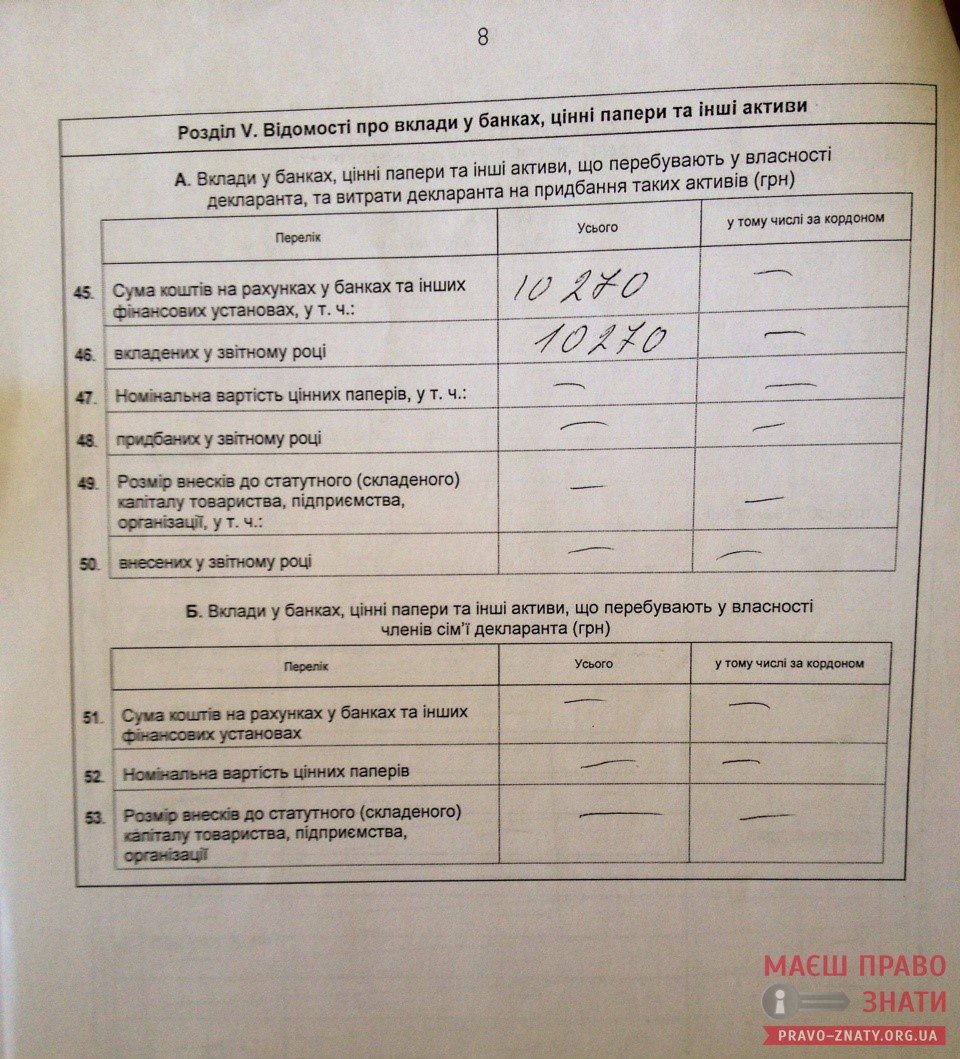 8
Розділ V. Відомості про вклади у банках, цінні папери та інші активи
А. Вклади у банках, цінні папери та інші активи, що перебувають у власності
декларанта, та витрати декларанта на придбання таких активів (грн)
Перелік Усього у тому числі за кордоном
45. Сума коштів на рахунках у банках та інших
фінансових установах, у т. ч.: 10 270 —
46. вкладених у звітному році 10 270 —
47. Номінальна вартість цінних паперів, у т. ч.: — —
48. придбаних у звітному році — —
49. Розмір внесків до статутного (складеного)
капіталу товариства, підприємства,
організації, у т. ч.: — —
50. внесених у звітному році — —
Б. Вклади у банках, цінні папери та інші активи, що перебувають у власності
членів сім’ї декларанта (грн)
Перелік Усього у тому числі за кордоном
51. Сума коштів на рахунках у банках та інших
фінансових установах — —
52. Номінальна вартість цінних паперів — —
53. Розмір внесків до статутного (складеного)
капіталу товариства, підприємства,
організації — —
МАЄШ ПРАВО
ЗНАТИ
PRAVO-ZNATY.ORG.UA